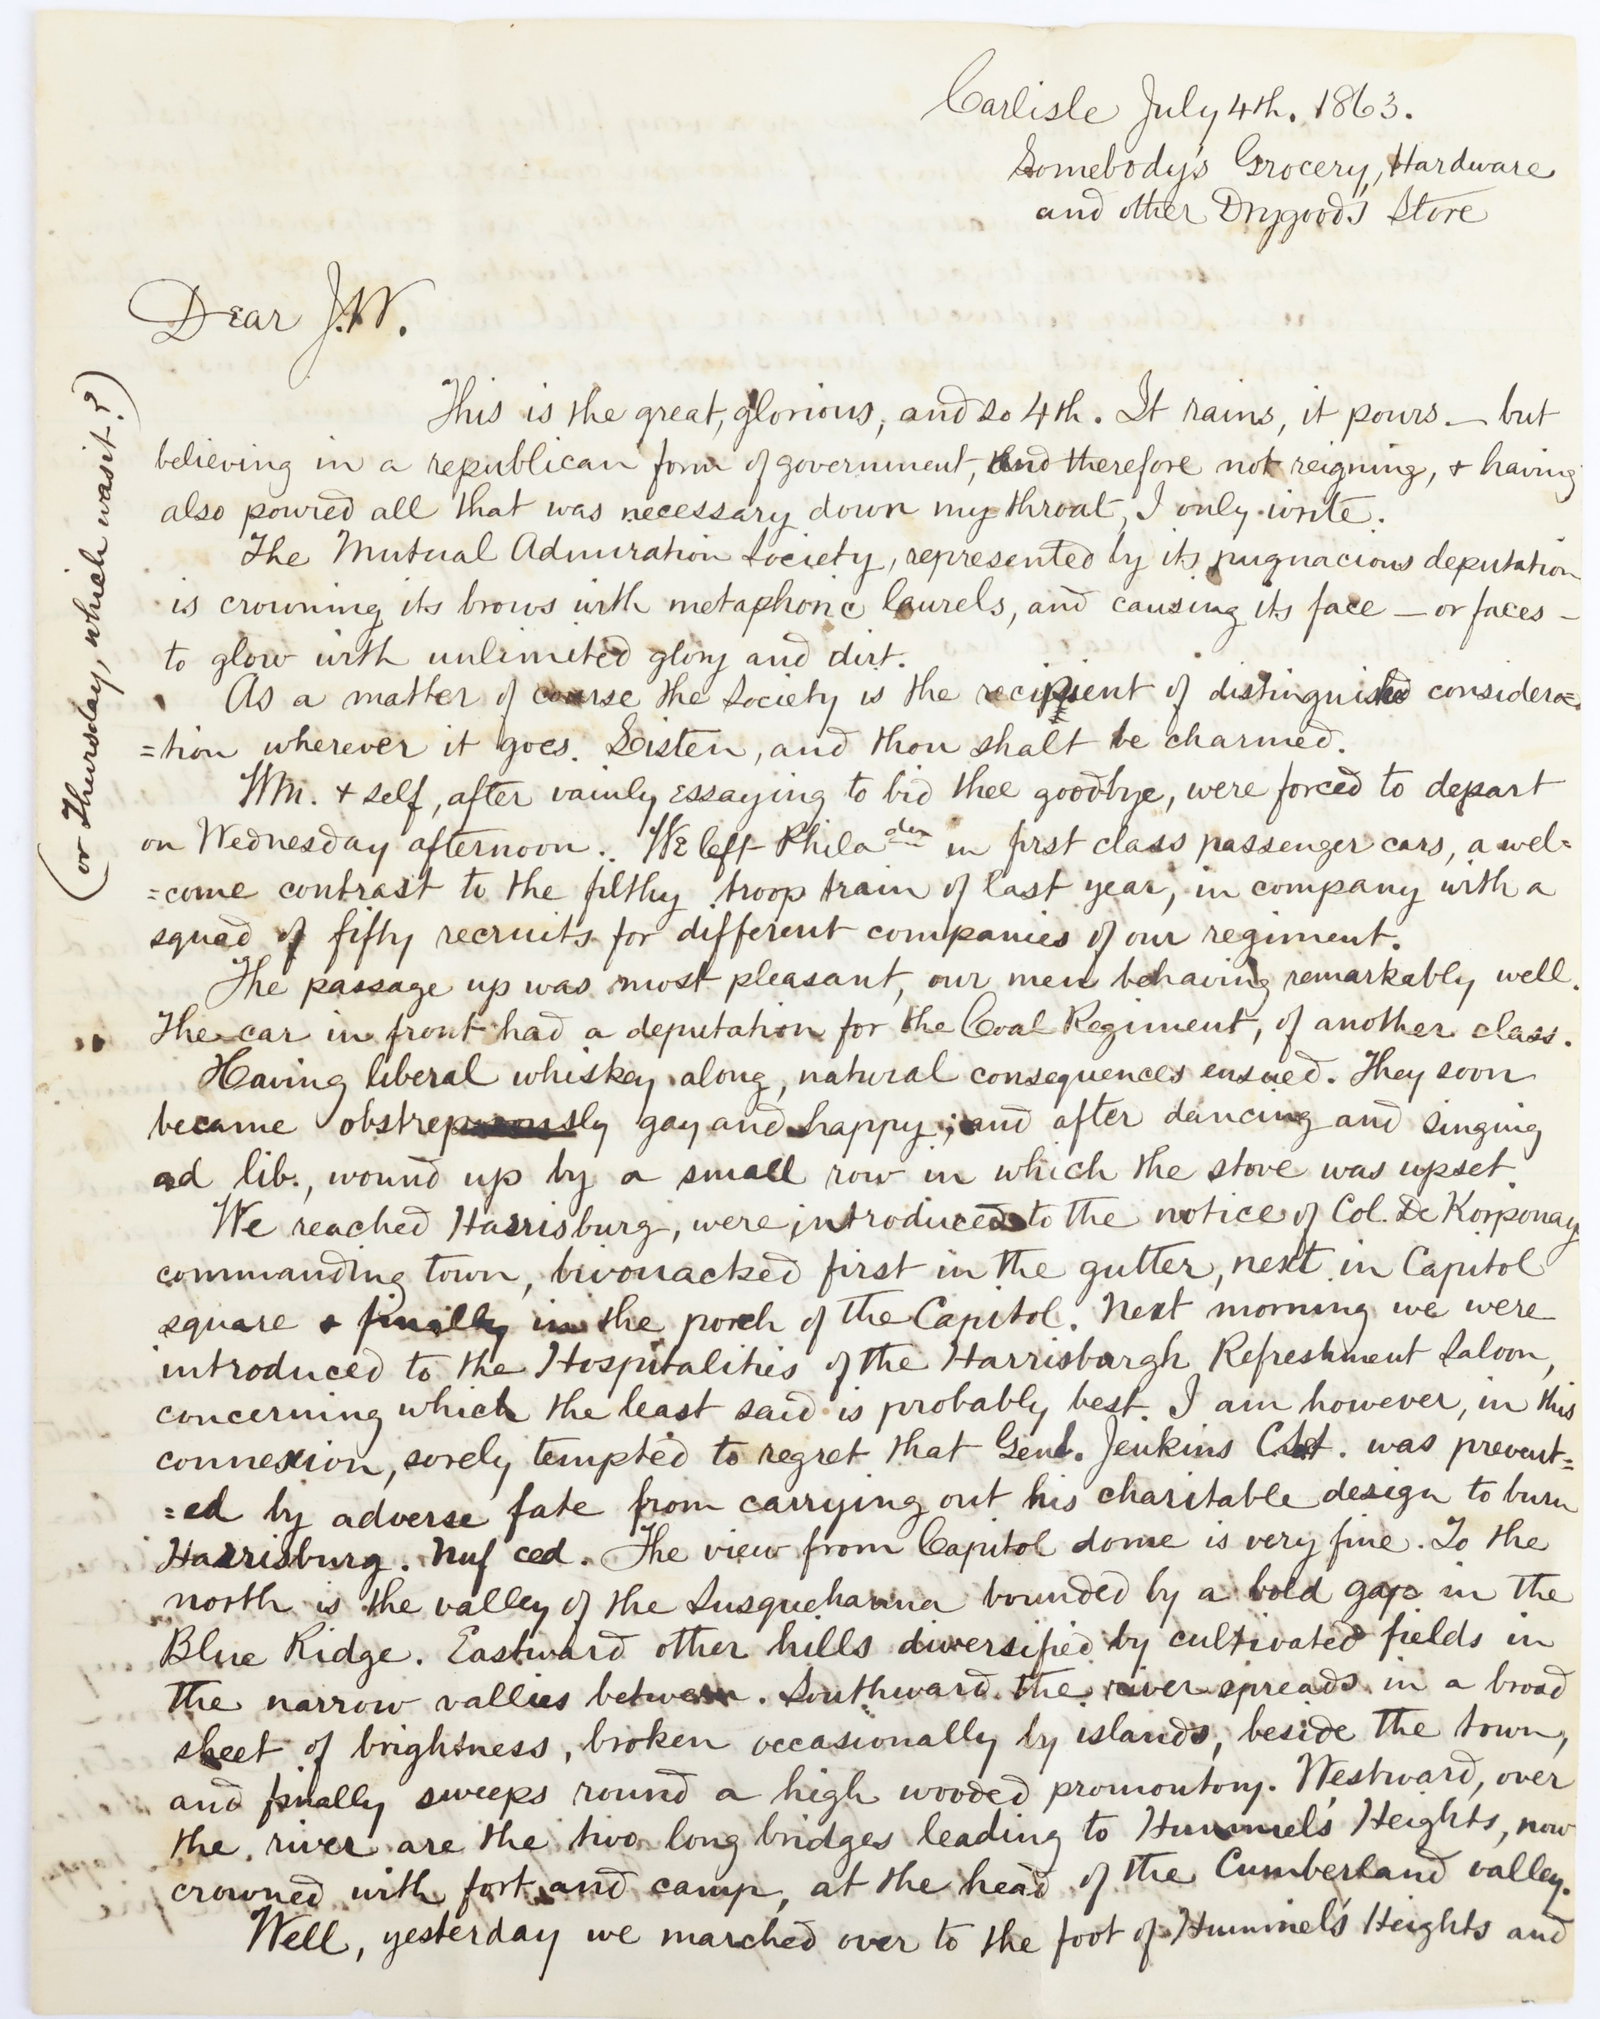 Carlisle July 4th. 1863.
Somebody's Grocery, Hardware
and other Drygoods Store
Dear J.W.
This is the great, glorious, and so 4th. It rains, it pours — but
believing in a republican form of government, and therefore not reigning, & having
also poured all that was necessary down my throat, I only write.
The Mutual Admiration Society, represented by its pugnacious deputation
is crowning its brows with metaphoric laurels, and causing its face — or faces —
to glow with unlimited glory and dirt.
As a matter of course the Society is the recipient of distinguished considera=
=tion wherever it goes. Listen, and thou shalt be charmed.
Wm. & self, after vainly essaying to bid thee goodbye, were forced to depart
on Wednesday afternoon. We left Phila in first class passenger cars, a wel=
=come contrast to the filthy troop train of last year, in company with a
squad of fifty recruits for different companies of our regiment.
The passage up was most pleasant, our men behaving remarkably well.
The car in front had a deputation for the Coal Regiment, of another class.
Having liberal whiskey along, naturual consequences ensued. They soon
became obstreperously gay and happy; and after dancing and singing
ad lib., wound up by a small row in which the stove was upset.
We reached Harrisburg, were introduced to the notice of Col. De Korponay
commanding town, bivouacked first in the gutter, next in Capitol
square & finally in the porch of the Capitol. Next morning we were
introduced to the Hospitalities of the Harrisburgh Refreshment Saloon,
concerning which the least said is probably best. I am however, in this
connexion, sorely tempted to regret that Genl. Jenkins was prevent=
=ed by adverse fate from carrying out his charitable design to burn
Harrisburg. Nuf ced. The view from Capitol dome is very fine. To the
north is the valley of the Susquehanna bounded by a bold gap in the
Blue Ridge. Eastward other hills diversified by cultivated fields in
the narrow vallies between. Southward the river spreads in a broad
sheet of brightness, broken occasionally by islands, beside the town,
and finally sweeps round a high wooded promontory. Westward, over
the river are the two long bridges leading to Hummel's Heights, now
crowned with fort and camp, at the head of the Cumberland valley.
Well, yesterday we marched over to the foot of Hummel's Heights and
(or Thursday, which was it?)